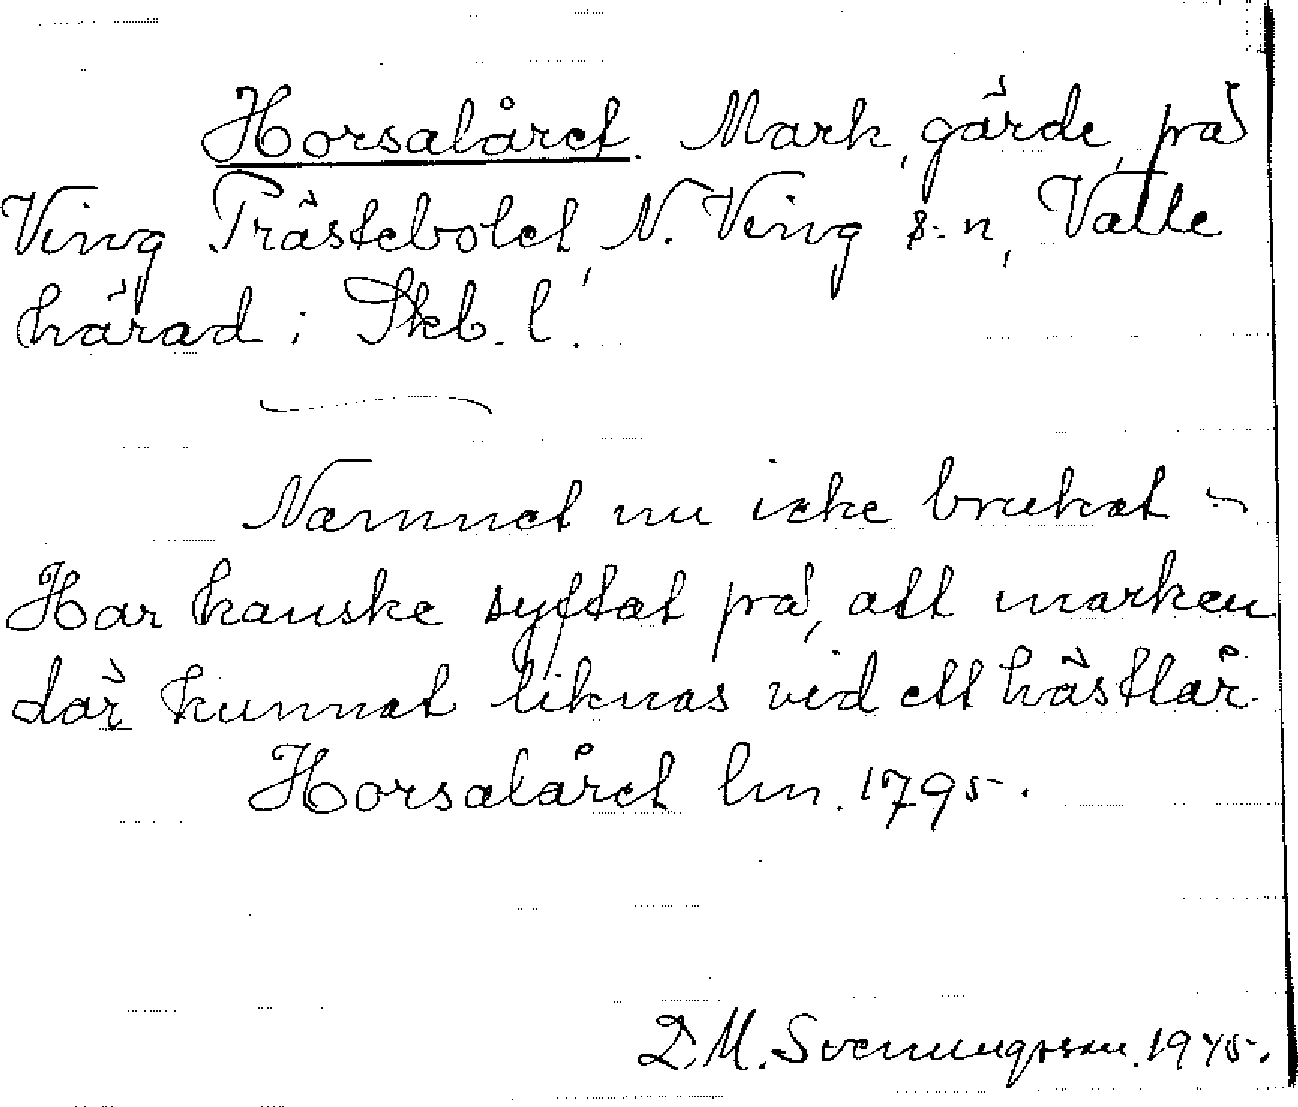 Horsalåret. Mark, gärde, på
Ving Prästebolet, N. Ving s-n, Valle
härad i Skb. l.
Namnet nu icke brukat -
Har kanske syftat på, att marken
där kunnat liknas vid ett hästlår.
Horsalåret lm. 1795.
D. M. Svenungsson. 1945.